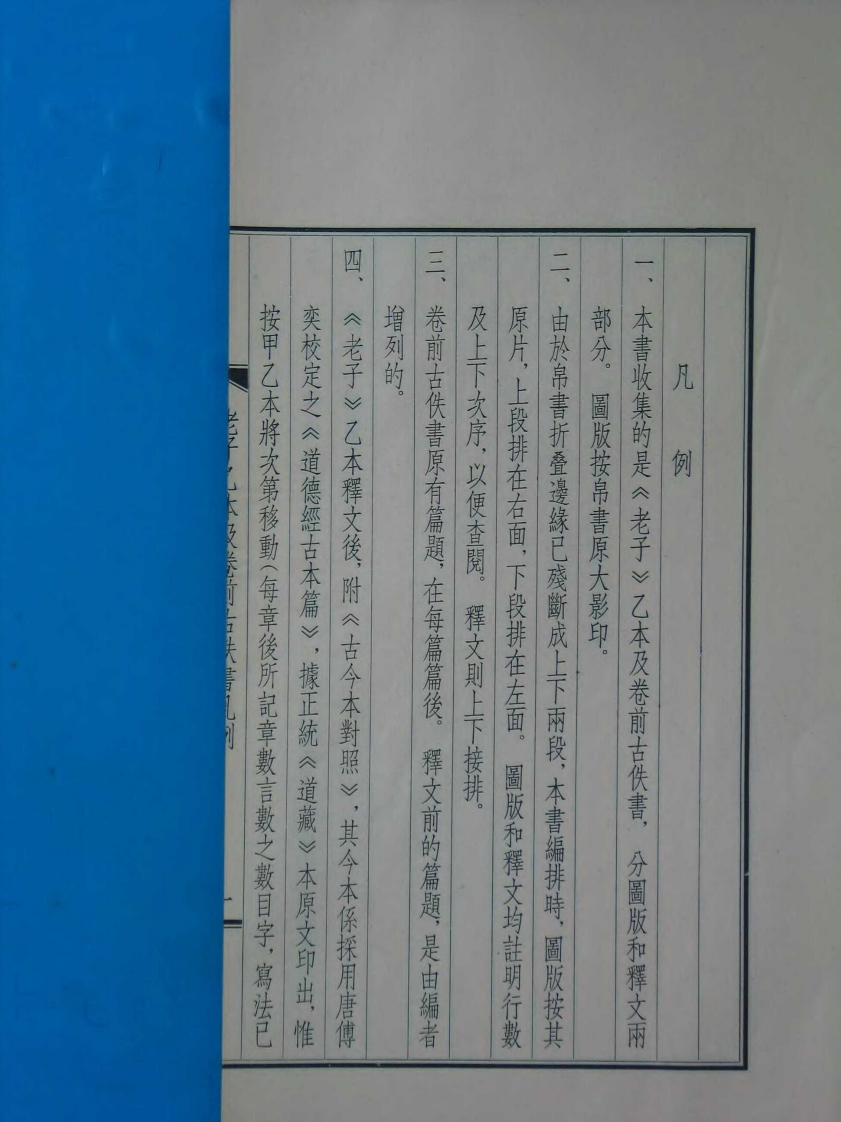 凡例
一、本書收集的是《老子》乙本及卷前古佚書，分圖版和釋文兩
部分。圖版按帛書原大影印。
二、由於帛書折叠邊緣已殘斷成上下兩段，本書編排時，圖版按其
原片，上段排在右面，下段排在左面。圖版和釋文均註明行數
及上下次序，以便查閱。釋文則上下接排。
三、卷前古佚書原有篇題，在每篇篇後。釋文前的篇題，是由編者
增列的。
四、《老子》乙本釋文後，附《古今本對照》，其今本係採用唐傅
奕校定之《道德經古本篇》，據正統《道藏》本原文印出，惟
按甲乙本將次第移動（每章後所記章數言數之數目字，寫法已
老子乙本及卷前古佚書凡例